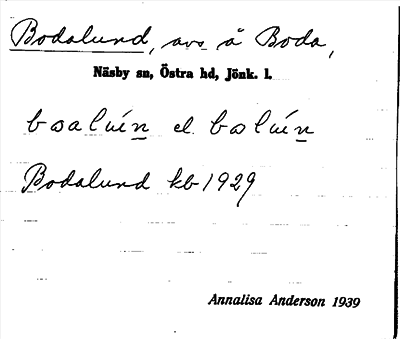 Bodalund, avs å Boda,
Näsby sn, Östra hd, Jönk. l.
Bodalund kb 1929
Annalisa Anderson 1939